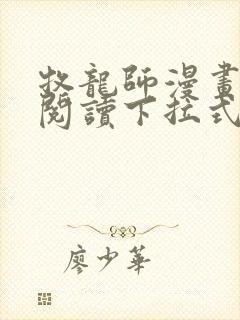 牧龍師漫畫
閱讀下拉式
廖少華